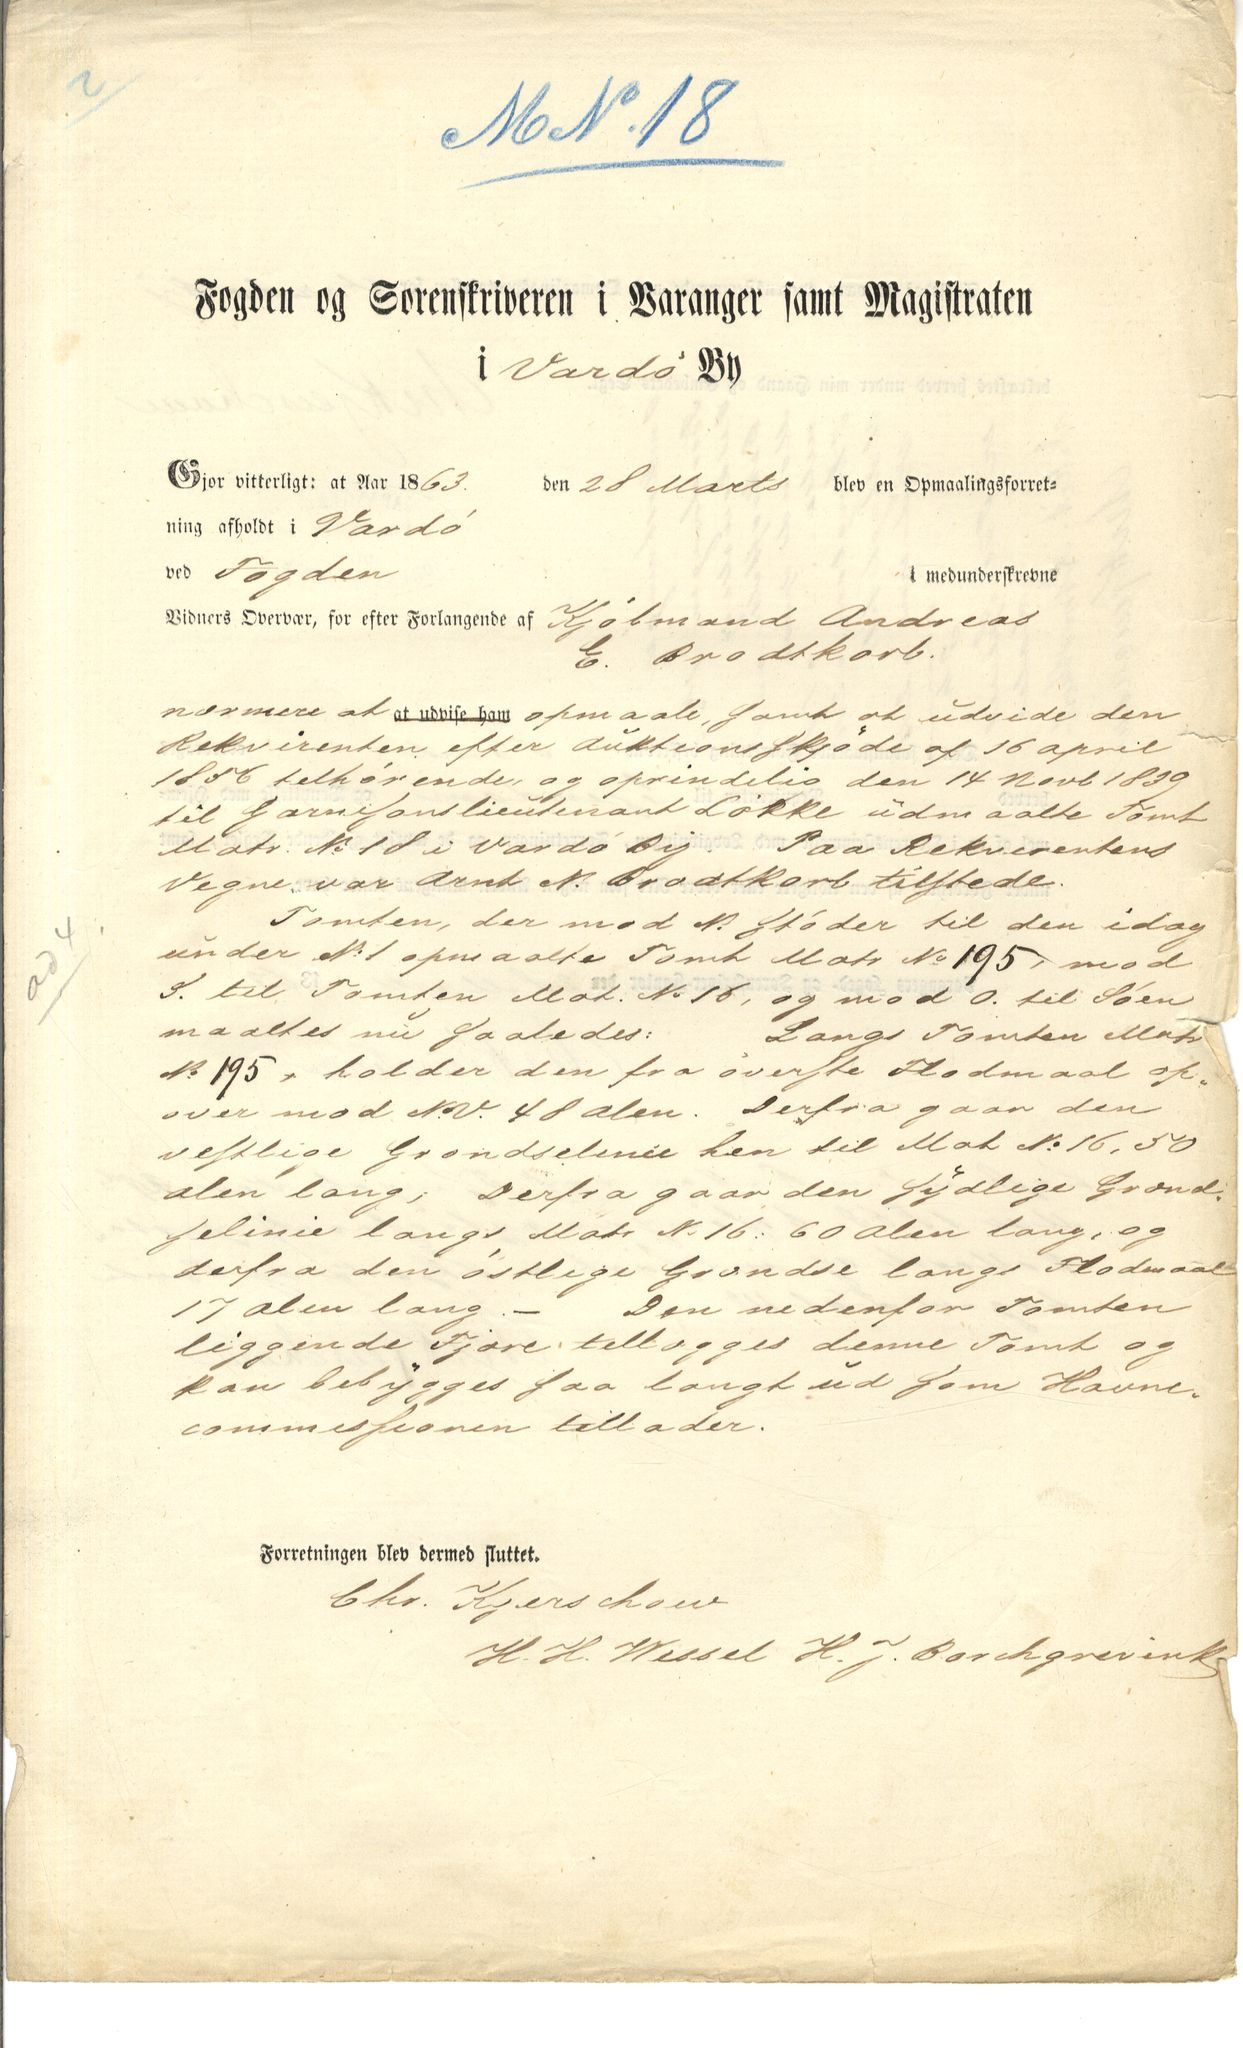 2
M No. 18
Fogden og Sorenskriveren i Varanger samt Magistraten
i Vardö By
Gjor vitterligt: at Aar 1863. den 28 Marts blev en Opmaalingsforret-
ning afholdt i Vardö
ved Fogden i medunderskrevne
Vidners Overvær, for efter Forlangende af Kjöbmand Andreas
E. Brodtkorb.
nærmere at at udvise ham opmaale, samt at udvide den
Rekvirenten efter Auktionsskjöde af 16 april
1856 tilhørende, og oprindelig den 14 Novb 1839
til Garnisonslieutenant Lökke udmaalte Tomt
Matr. No 18 i Vardö By. Paa Rekvirentens
Vegne var Arnt N. Brodtkorb tilstede.
Tomten, der mod N. stöder til den idag
under No 1 opmaalte Tomt Matr No 195, mod
S. til Tomten Mat. No 16, og mod O. til Søen
maaltes nu saaledes: Langs Tomten Matr
No 195, holder den fra överste Flodmaal op-
over mod N.V. 48 alen. Derfra gaar den
vestlige Grændselinie hen til Mat No 16, 50
alen lang, Derfra gaar den sydlige Grænd-
selinie langs Matr No 16: 60 Alen lang, og
derfra den östlige Grændse langs Flodmaal
17 Alen lang. — Den nedenfor Tomten
liggende Fjære tillægges denne Tomt og
kan bebygges saa langt ud som Havne-
commissionen tillader.
ad 4.
Forretningen blev dermed sluttet.
Chr. Kjerschow
H. H. Wessel H. J. Borchgrevink